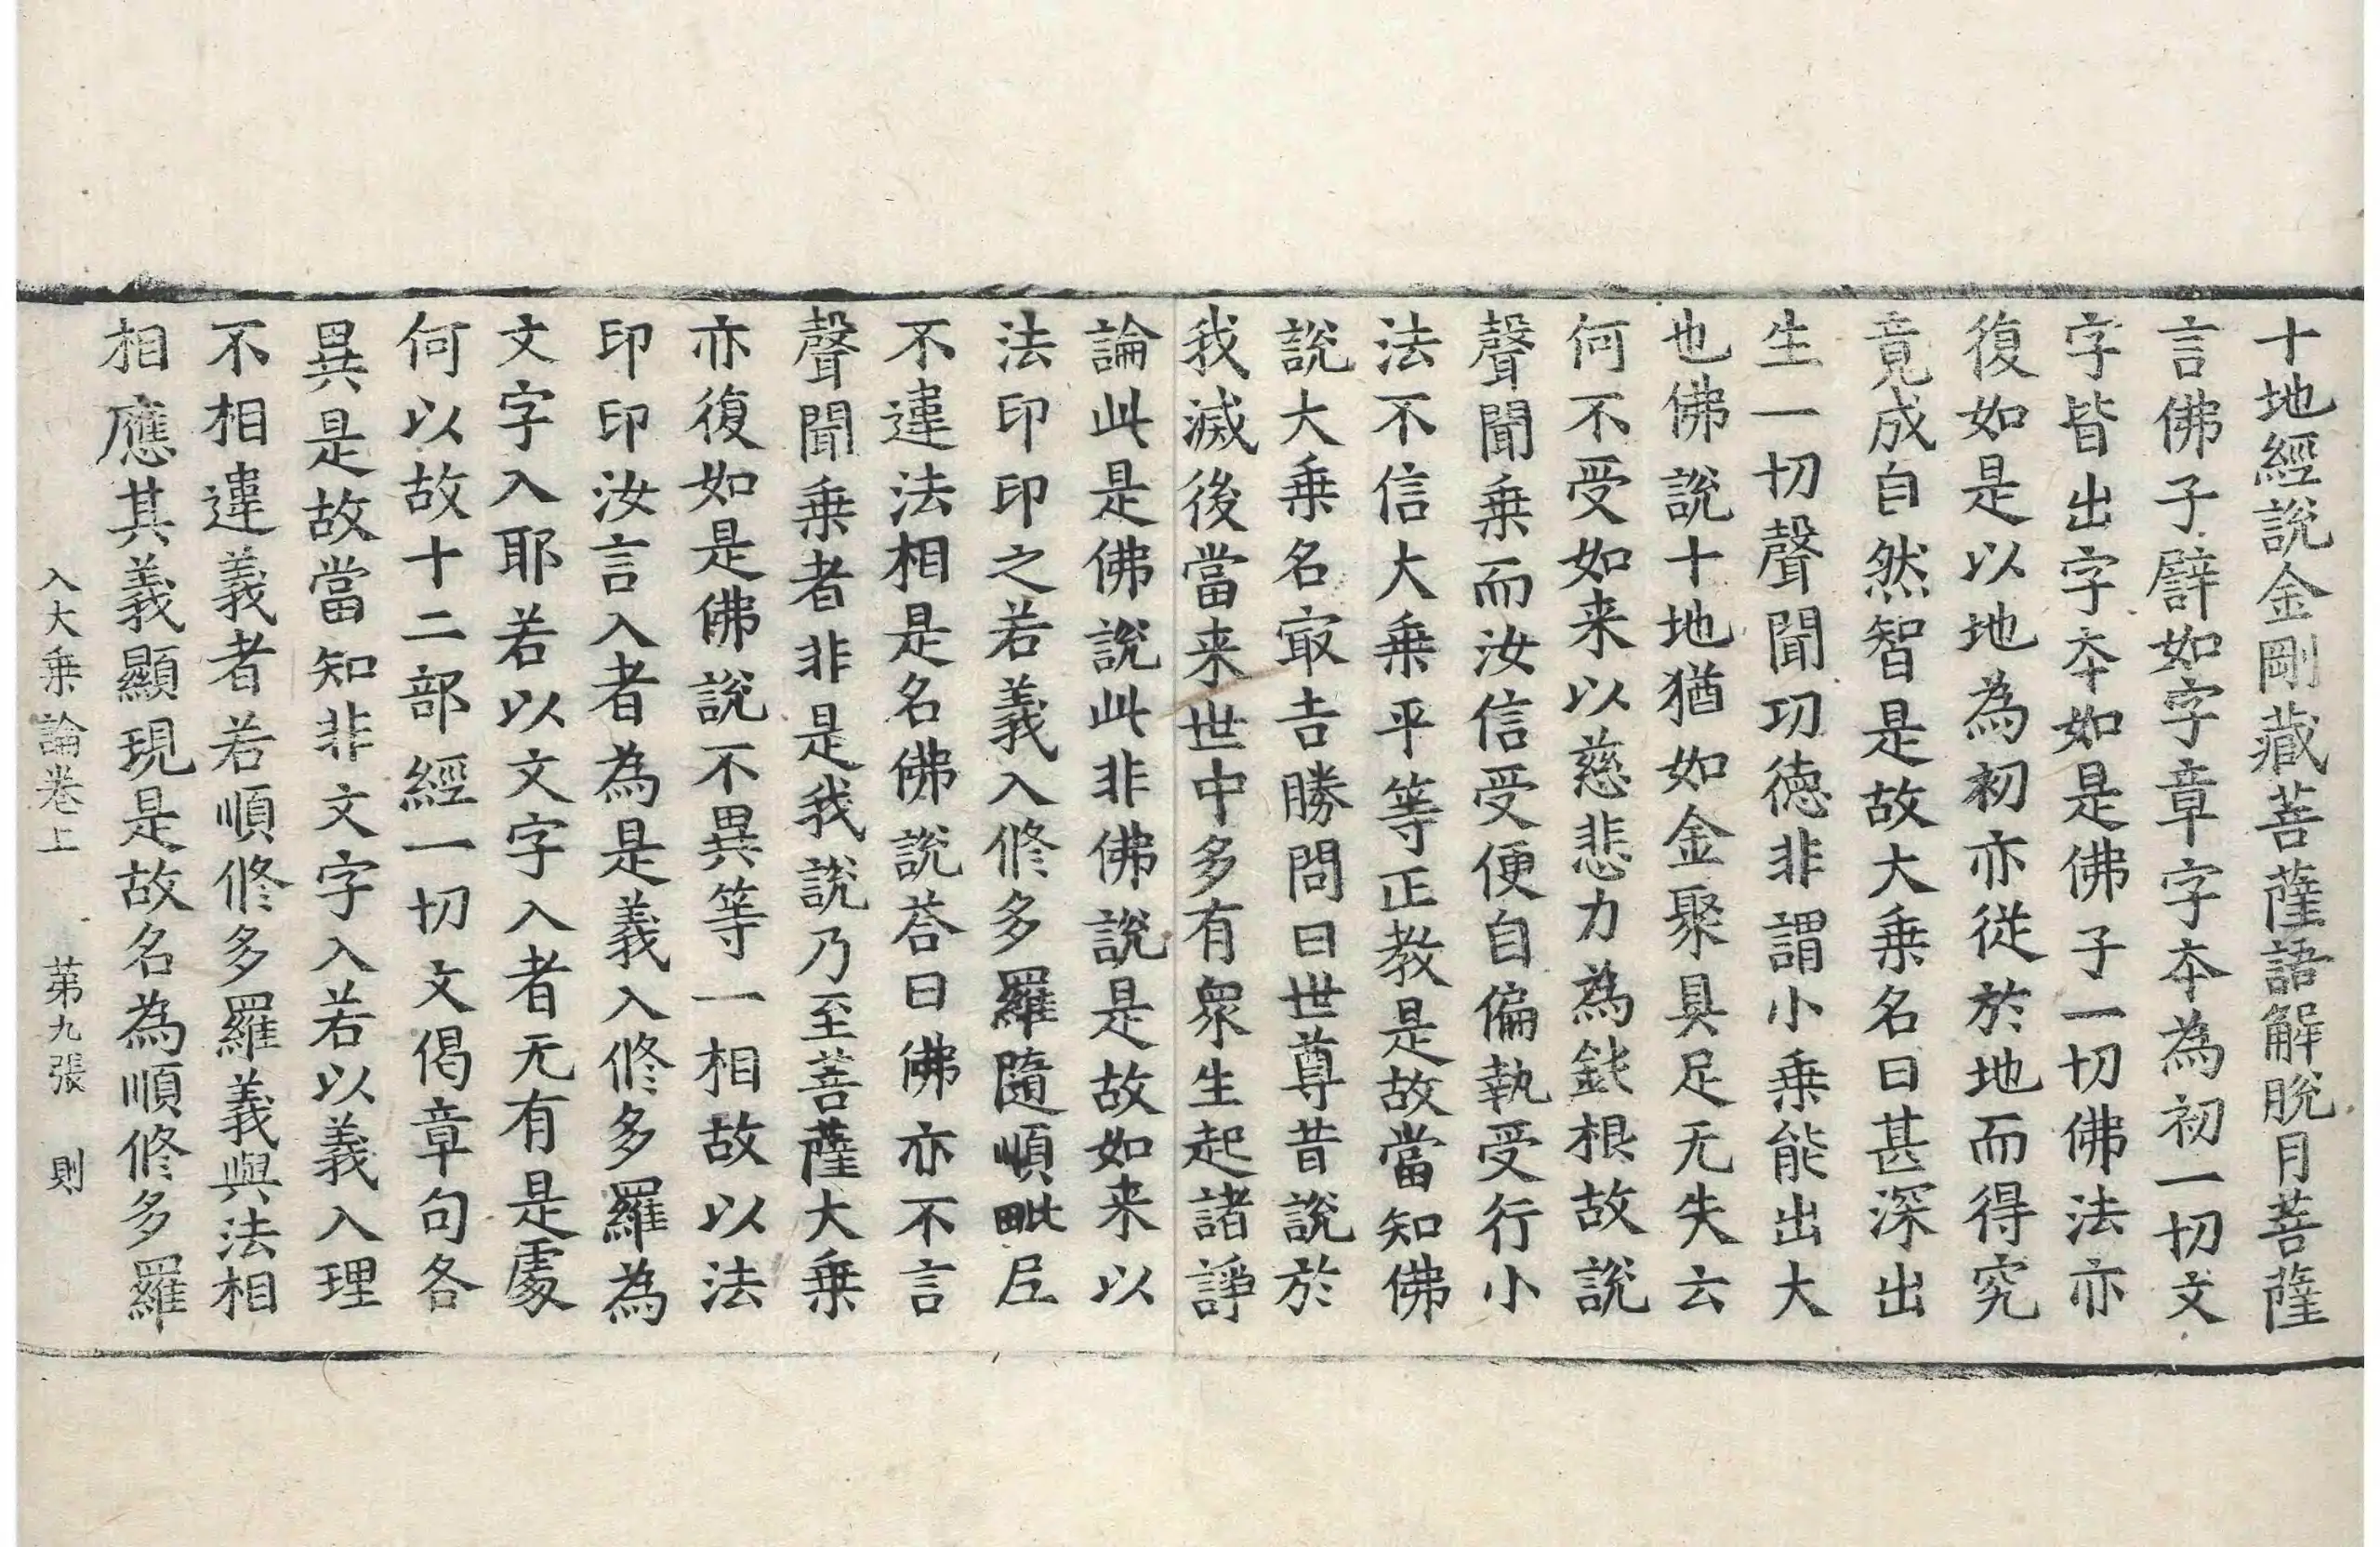 十地經說金剛藏菩薩語解脫月菩薩
言佛子譬如字章字本為初一切文
字皆出字本如是佛子一切佛法亦
復如是以地為初亦從於地而得究
竟成自然智是故大乗名曰甚深出
生一切聲聞功德非謂小乗能出大
也佛說十地猶如金聚具足无失云
何不受如来以慈悲力為鈍根故說
聲聞乗而汝信受便自偏執受行小
法不信大乗平等正教是故當知佛
說大乗名㝡吉勝問曰世尊昔說於
我滅後當来世中多有衆生起諸諍
論此是佛說此非佛說是故如来以
法印印之若義入修多羅隨順毗尼
不違法相是名佛說荅曰佛亦不言
聲聞乗者非是我說乃至菩薩大乗
亦復如是佛說不異等一相故以法
印印汝言入者為是義入修多羅為
文字入耶若以文字入者无有是處
何以故十二部經一切文偈章句各
異是故當知非文字入若以義入理
不相違義者若順修多羅義與法相
相應其義顯現是故名為順修多羅
入大乗論卷上 第九張 則